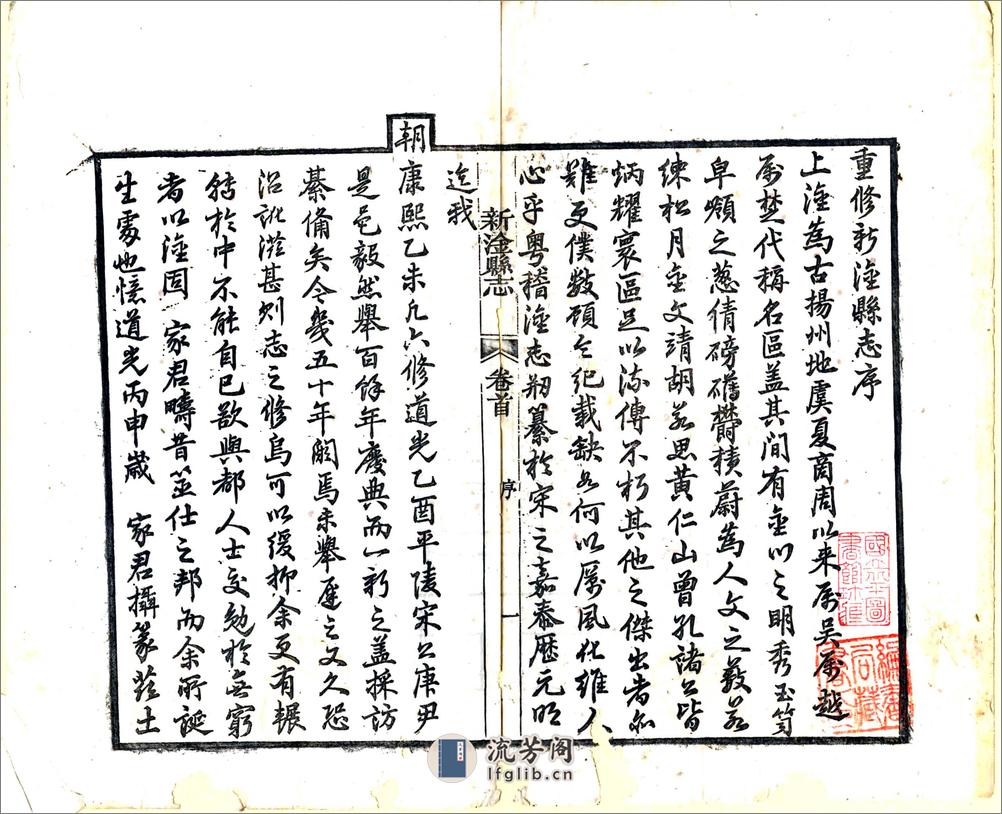 重修新淦縣志序
上淦為古揚州地虞夏商周以来属吳属越
属楚代稱名區盖其間有金川之明秀玉笥
阜頫之葱倩磅礴欝積蔚為人文之薮若
練松月金文靖胡若思黄仁山曾孔諸公皆
炳耀寰區足以流傳不朽其他之傑出者亦
難更僕數頋令紀載缺如何以厲風化維人
心乎粤稽淦志刱纂於宋之嘉泰歷元明
迄我
朝康熙乙未凡六修道光乙酉平陵宋公庚尹
是邑毅然舉百餘年廢典而一新之盖採訪
綦備矣今幾五十年闕焉未舉歷之又久恐
沿訛滋甚則志之修烏可以緩抑余更有輾
轉於中不能自已欲與都人士交勉於無窮
者以淦固 家君疇昔筮仕之邦而余所誕
生處也憶道光丙申歲 家君攝篆茲土
新淦縣志
卷首
序
一
流芳阁
lfglib.cn